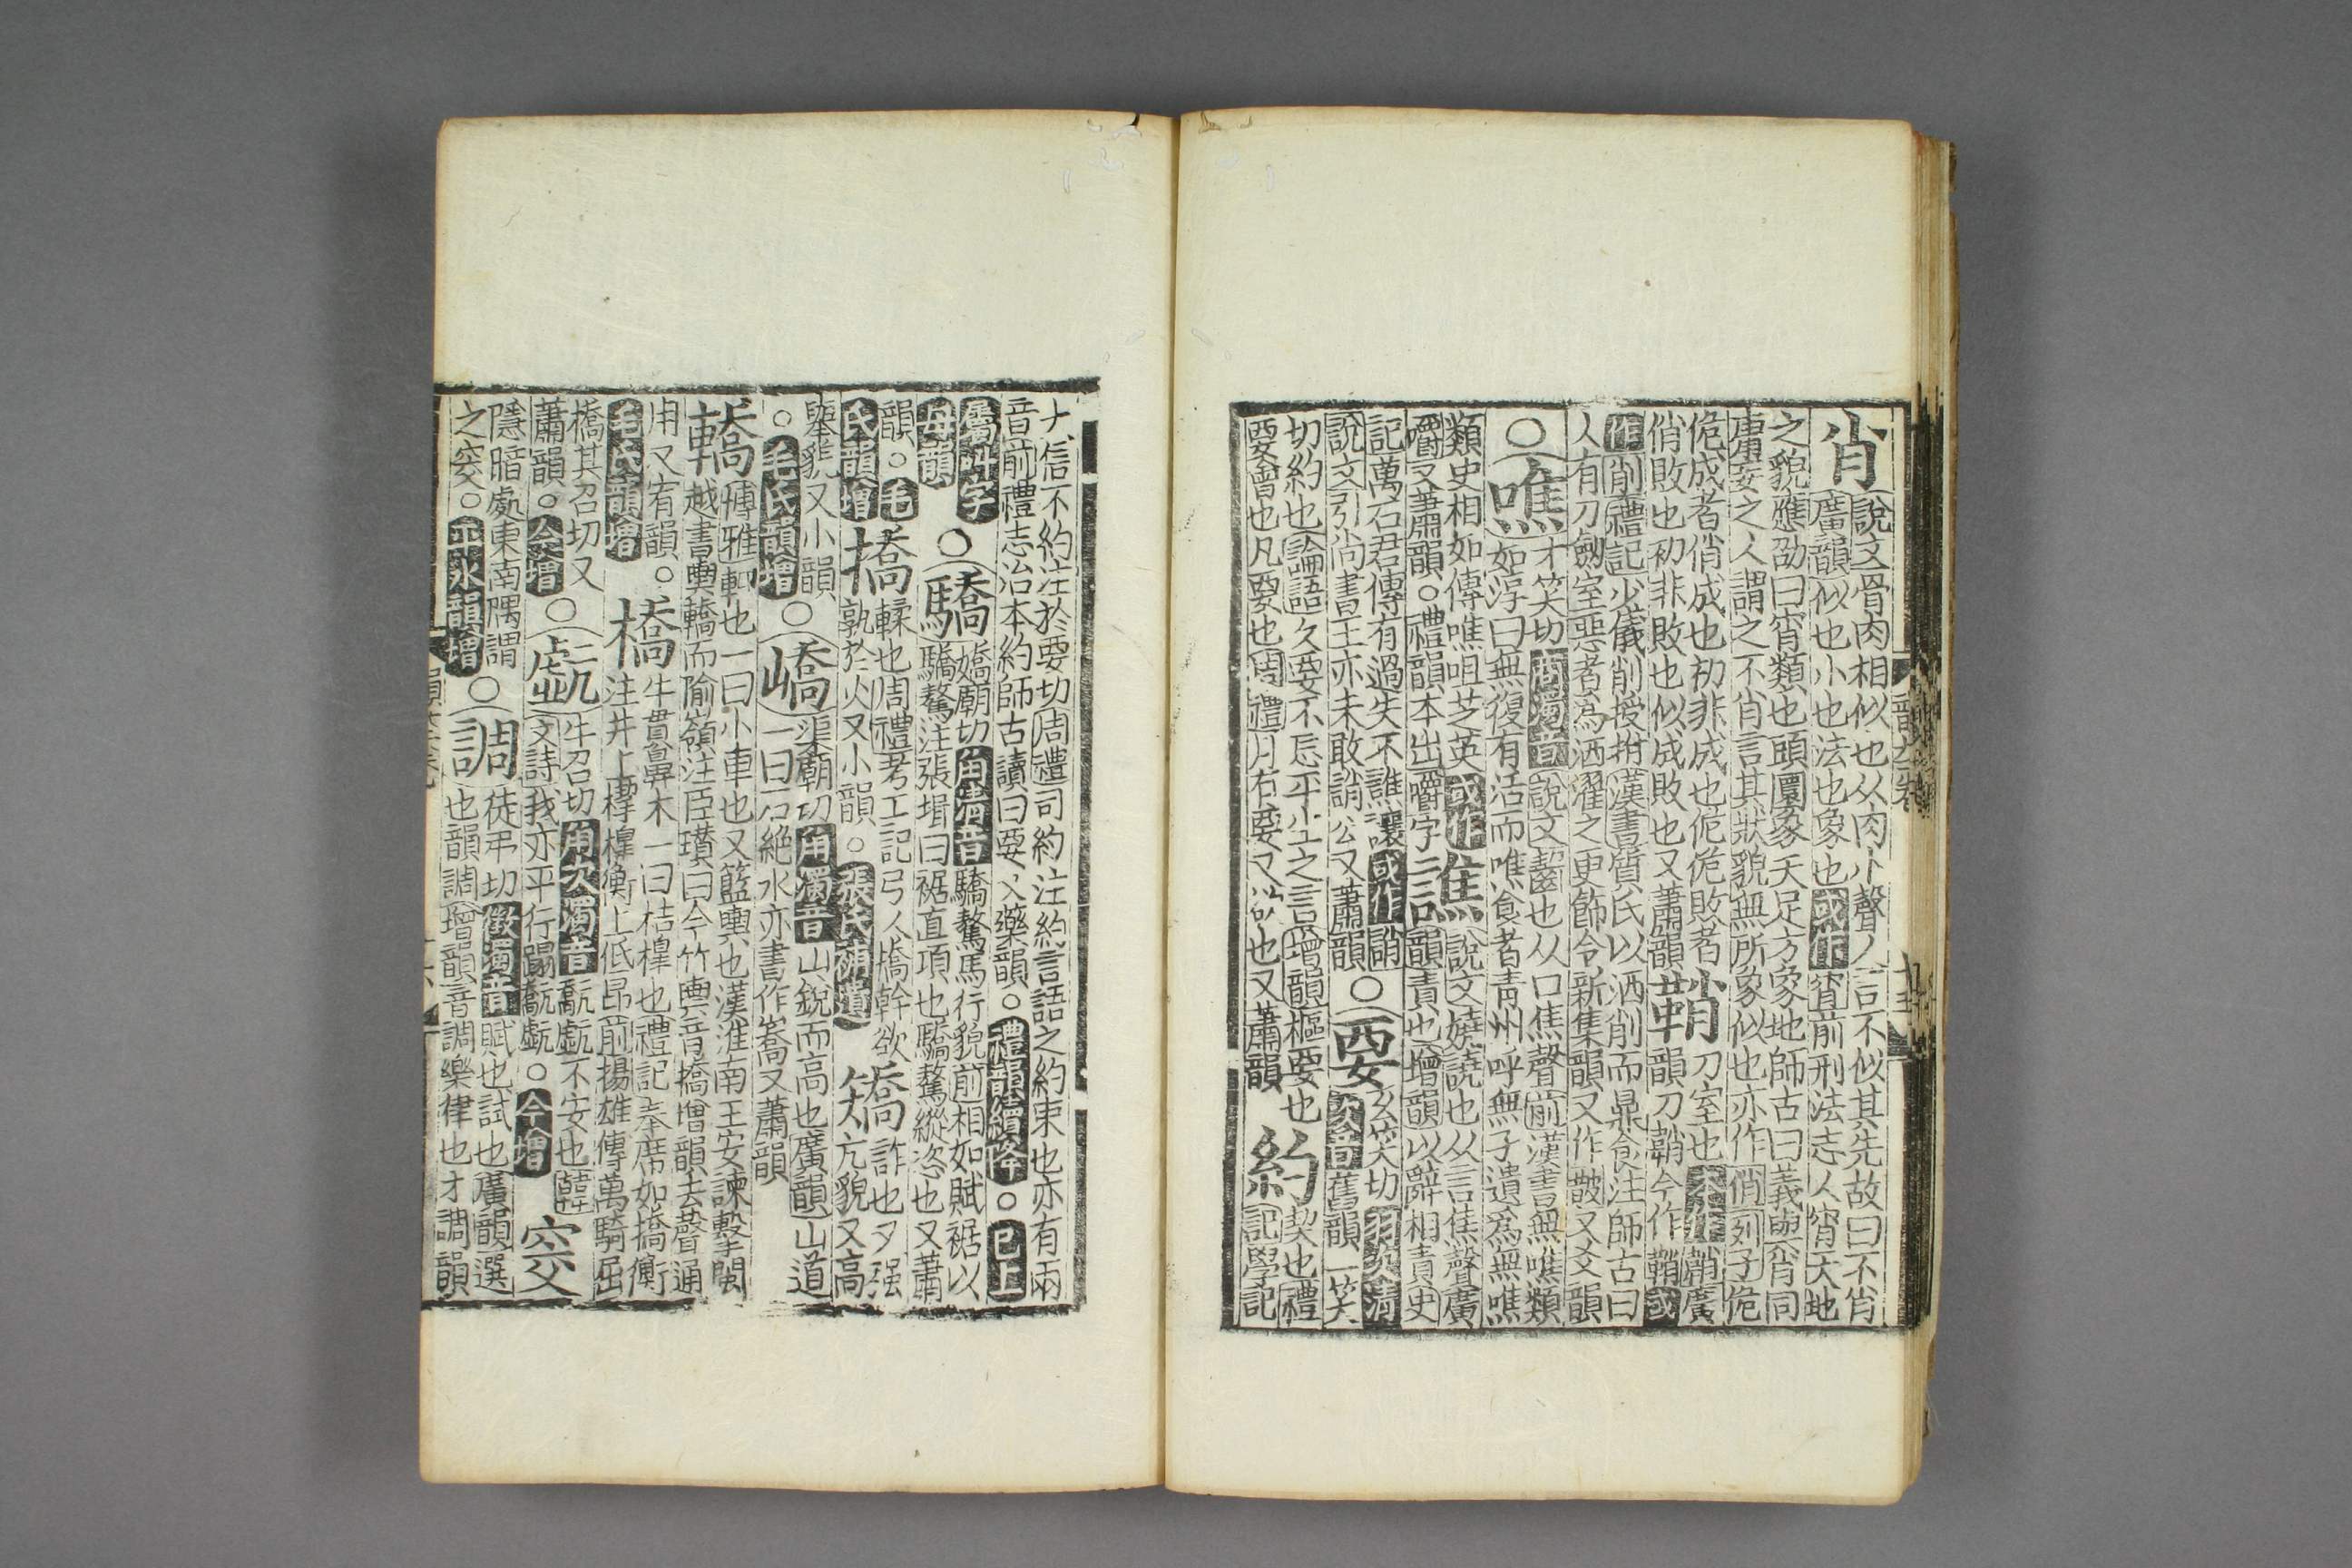 肖
說文骨肉相似也从肉小聲人言不似其先故曰不肖
廣韻似也小也法也象也或作宵前刑法志人宵天地
之貌應劭曰宵類也頭圜象天足方象地師古曰義與肖同
庸妄之人謂之不肖言其狀貌無所象似也亦作俏列子佹
佹成者俏成也初非成也佹佹敗者
俏敗也初非敗也似成敗也又蕭韻
鞘
刀室也或作 廣
韻刀鞘今作鞘或
作削禮記少儀削授拊漢書質氏以洒削而鼎食注師古曰
人有刀劒室惡者爲洒濯之更飾令新集韻又作 又爻韻
○噍
才笑切商濁音說文齧也从口焦聲前漢書無噍類
如淳曰無復有活而噍食者青州呼無孑遺爲無噍
類史相如傳噍咀芝英或作
嚼又蕭韻○禮韻本出嚼字
譙
說文嬈譊也从言焦聲廣
韻責也增韻以辭相責史
記萬石君傳有過失不譙讓或作誚
說文引尚書王亦未敢誚公又蕭韻
○要
玄笑切羽次清
次音舊韻一笑
切約也論語久要不忘平生之言增韻樞要也
要會也凡要也周禮月有要又欲也又蕭韻
約
契也禮
記學記
大信不約注於要切周禮司約注約言語之約束也亦有兩
音前禮志治本約師古讀曰要又藥韻○禮韻續降○已上
屬叫字
母韻
○驕
嬌廟切角清音驕驁馬行貌前相如賦裾以
驕驁注張揖曰裾直項也驕驁縱恣也又蕭
韻○毛
氏韻增
撟
輮也周禮考工記弓人撟幹欲
孰於火又小韻○張氏補遺
矯
詐也夕强
亢貌又高
舉貌又小韻
○毛氏韻增
○嶠
渠廟切角濁音山銳而高也廣韻山道
一曰石絶水亦書作嶠又蕭韻
轎
博雅軕也一曰小車也又籃輿也漢淮南王安諫擊閩
越書輿轎而隃嶺注臣瓚曰今竹輿音橋增韻去聲通
用又宥韻○
毛氏韻增
橋
牛貫鼻木一曰桔槹也禮記奉席如橋衡
注井上橰槹衡上低昂前揚雄傳萬騎屈
橋其召切又
蕭韻○今增
○虤
牛召切角次濁音 不安也韓
文詩我亦平行蹋 ○今增
窔
隱暗處東南隅謂
之窔○平水韻增
○調
徒弔切徵濁音賦也試也廣韻選
也韻調增韻音調樂律也才調韻